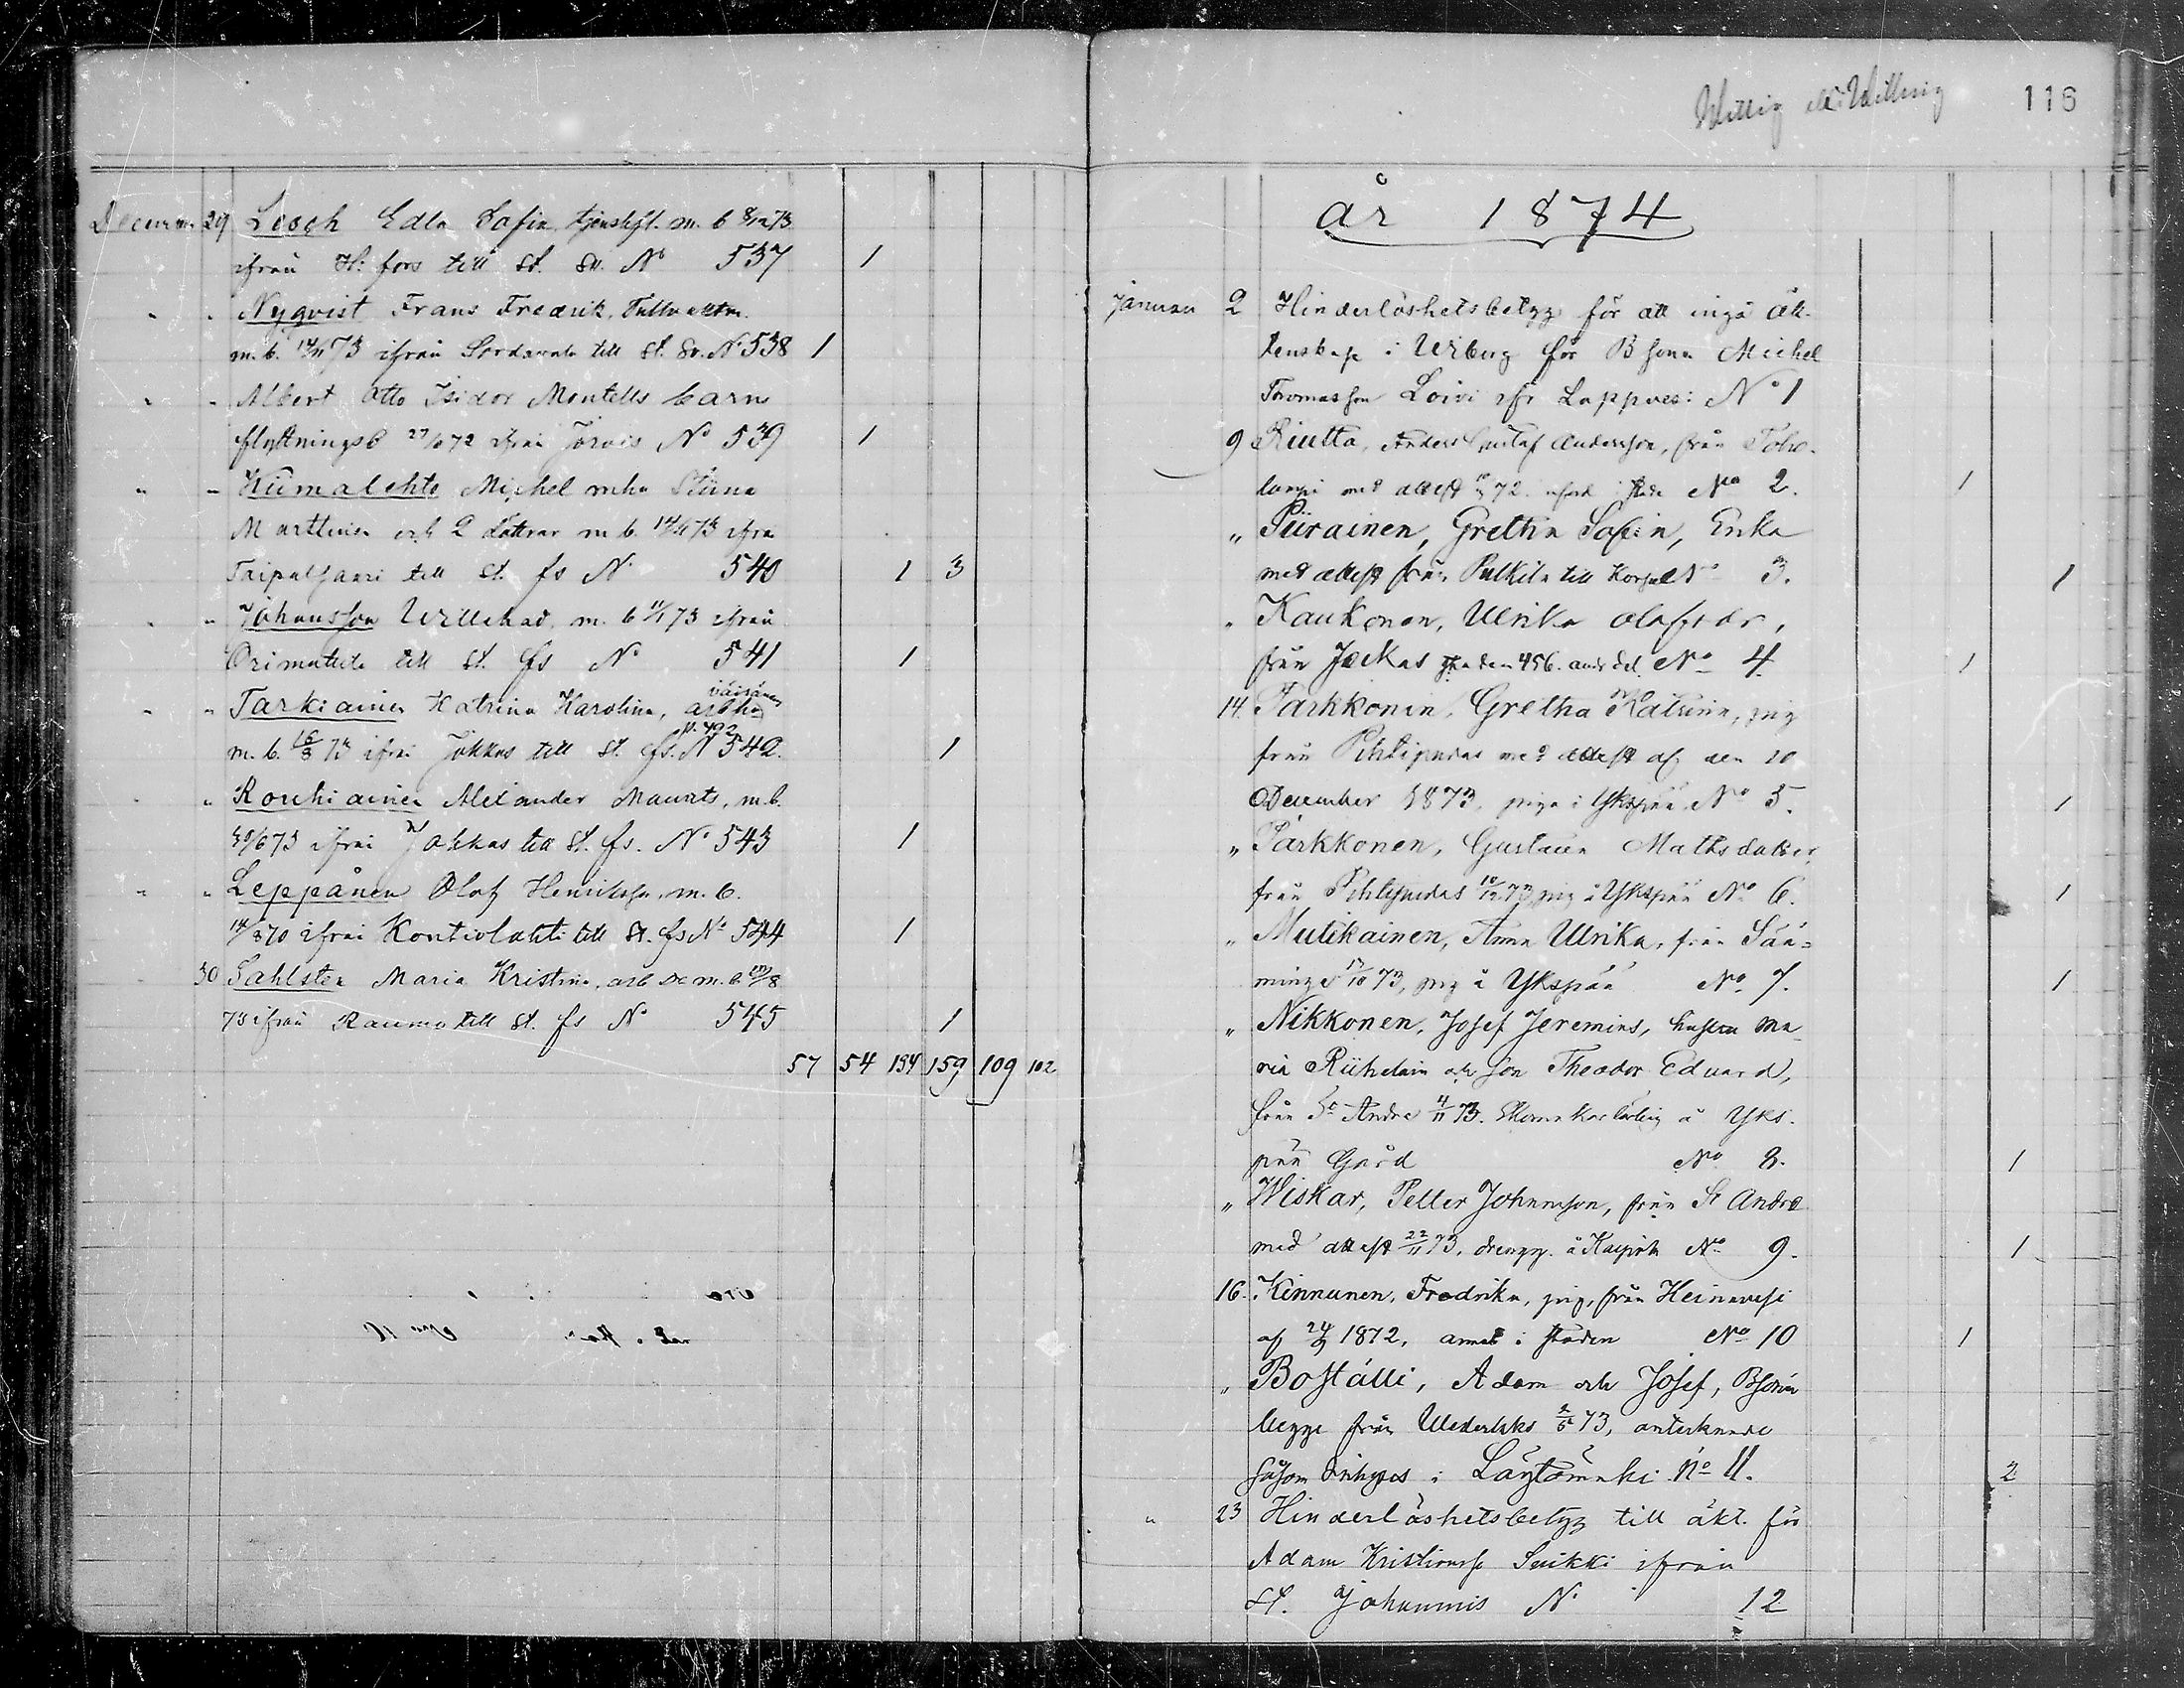 Decemr 29 Lesch Edla Sofia, tjenstfl. m. b 8/12 73
ifrån H: fors till St. Sv. No 537 1
" " Nyqvist Frans Fredrik, Tullvaktm.
m. b. 14/11 73 ifrån Sordavala till St. Sv. No 538 1
" " Albert Otto Isidor Montells barn
flyttningsb 27/10 72 ifrån Jorois No 539 1
" " Kiimalehto Michel mhu Stiina
Marttinen och 2 döttrar m b. 14/11 73 ifrån
Taipalsaari till St. fs No 540 1 3
" " Johansson Willehad, m. b 11/1 73 ifrån
Orimattila till St. fs No 541 1
väisänen
" " Tarkiainen Katrina Karolina, arbha
p. 492
m. b. 16/3 73 ifrån Jokkas till St. fs. No 542. 1
" " Roschiainen Alexander Maurits, m. b.
30/6 73 ifrån Jokkas till St. fs. No 543 1
" " Leppänen Olof Henriksson, m. b.
14/3 70 ifrån Kontiolahti till St. fs No 544 1
30 Sahlsten Maria Kristina, arb m. b /8
73 ifrån Raumo till St. fs No 545 1
57 54 194 159 109 102
Willig Willing 116
år 1874
Januari 2 Hinderlöshetsbetyg för att ingå äk-
tenskap i Wiborg för Bsonen Michel
Thomasson Loivi ifr Lappves: No 1
9 Riutta, Anders Gustaf Andersson, från Toho-
lampi med attest 72. i stade No 2. 1
" Piirainen, Gretha Sofia, Enka
med attest från Pulkila till No 3. 1
" Kaukonen, Ulrika Olofsdr,
från Jockas 456. andr del. No 4. 1
14. Parkkonen, Gretha Katrina, pig
från Pihlipudas med attest af den 10
December 1873, piga i Ykspää No 5. 1
" Parkkonen, Gustava Mathsdotter,
från Pihlipudas 10/12 73, pig å Ykspää No 6. 1
" Mutikainen, Anna Ulrika, från Sää-
minge 17/10 73, pig å Ykspää No 7. 1
" Nikkonen, Josef Jeremias, hustru Ma-
ria Riihelain och son Theodor Eduard,
från St Andre 4/11 73. å Yks-
pää Gård No 8. 1
" Wiskar, Petter Johansson, från St Andre
med attest 22/11 73, dreng å No 9. 1
16. Kinnunen, Fredrika, pig, från Heinävesi
af 24/9 1872, annot i staden No 10 1
" Boställi, Adam och Josef, Bsöner
begge från Wederlaks 2/5 73, antecknade
såsom inhyses i Läytömäki No 11. 2
" 23 Hinderlöshetsbetyg till äkt. för
Adam Kristiansson Suikki ifrån
St. Johannis No 12